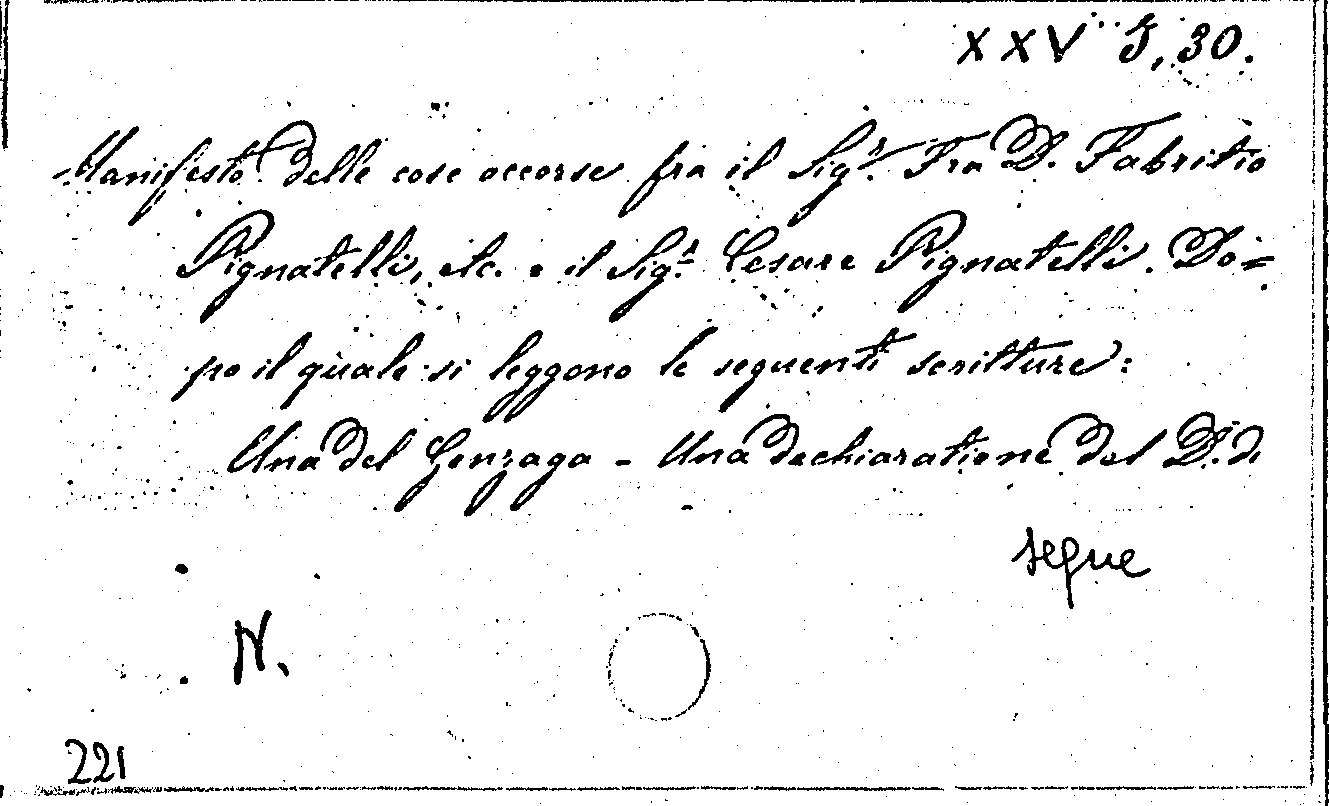 XXV J, 30.
Manifesto delle cose occorse fra il Sigr. Fra D. Fabritio
Pignatelli, etc. e il Sigr. Cesare Pignatelli. Do=
po il quale si leggono le seguenti scritture:
Una del Gonzaga - Una dechiaratione del D. di
segue
N.
221